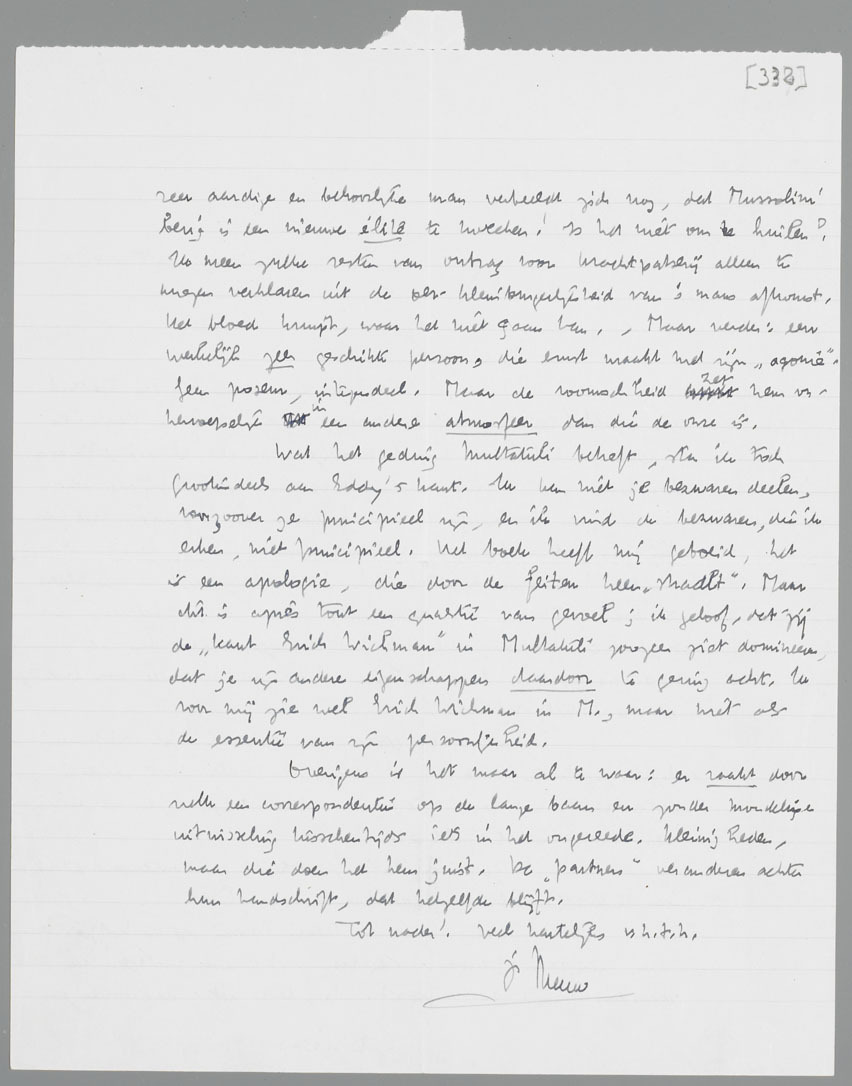 [332]
zeer aardige en behoorlijke man verbeeldt zich nog, dat Mussolini
bezig is een nieuwe élite te kweeken! Is het niet om te huilen?
Ik meen zulke resten van ontzag voor krachtpatserij alleen te
mogen verklaren uit de oer-kleinburgerlijkheid van 's mans afkomst.
Het bloed kruipt, waar het niet gaan kan. Maar verder: een
werkelijk zeer geschikte persoon, die ernst maakt met zijn „agonie".
Geen poseur, integendeel. Maar de roomschheid zet hem on-
herroepelijk in een andere atmosfeer dan die de onze is.
Wat het geding Multatuli betreft, sta ik toch
grootendeels aan Eddy's kant. Ik kan niet je bezwaren deelen,
voorzoover ze principieel zijn, en ik vind de bezwaren, die ik
erken, niet principieel. Het boek heeft mij geboeid, het
is een apologie, die door de feiten heen „straalt". Maar
dit is après tout een quaestie van gevoel; ik geloof, dat jij
de „kant Erich Wichman" in Multatuli zoozeer ziet domineeren,
dat je zijn andere eigenschappen daardoor te gering acht. Ik
voor mij zie wel Erich Wichman in M., maar niet als
de essentie van zijn persoonlijkheid.
Overigens is het maar al te waar: er raakt door
zulk een correspondentie op de lange baan en zonder mondelinge
uitwisseling tusschentijds iets in het ongereede. Kleinigheden,
maar die doen het hem juist. De „partners" veranderen achter
hun handschrift, dat hetzelfde blijft.
Tot nader! Veel hartelijks v.h.t.h.
je Menno